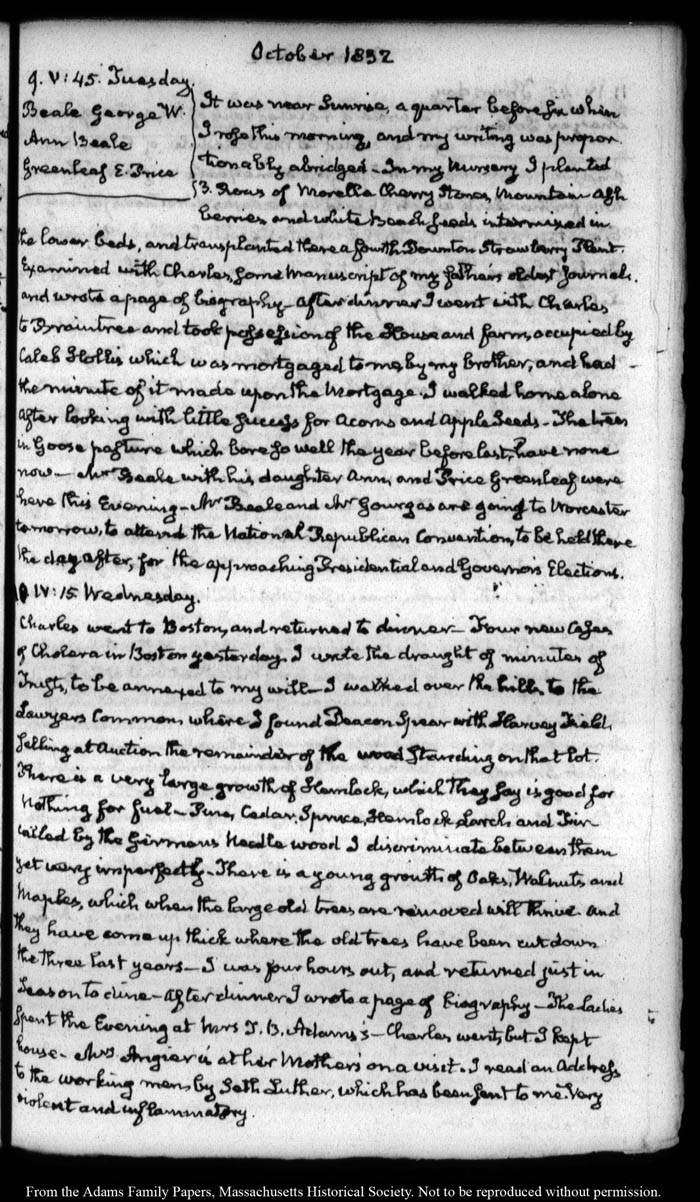 October 1832
9. V:45. Tuesday.
Beale George W.
Ann Beale
Greenleaf E. Price
It was near Sunrise, a quarter before six when
I rose this morning, and my writing was propor-
tionably abridged - In my Nursery I planted
3. Rows of Morella Cherry Stones, Mountain Ash
berries, and white Beach seeds intermixed in
the lower beds, and transplanted there a fourth Downton Strawberry Plant.
Examined with Charles, some Manuscript of my father's oldest Journals.
and wrote a page of biography - After dinner I went with Charles
to Braintree and took possession of the House and farm, occupied by
Caleb Hollis which was mortgaged to me, by my brother, and had
the minute of it made upon the Mortgage. I walked home alone
after looking with little success for Acorns and Apple Seeds - The trees
in Goose pasture which bore so well the year before last, have none
now - Mr Beale with his daughter Ann, and Price Greenleaf were
here this Evening - Mr Beale and Mr Gourgas are going to Worcester
tomorrow, to attend the National Republican Convention, to be held there
the day after, for the approaching Presidential and Governor's Elections.
10 IV:15. Wednesday.
Charles went to Boston, and returned to dinner - Four new Cases
of Cholera in Boston yesterday. I wrote the draught of minutes of
Trusts, to be annexed to my will - I walked over the hills to the
Lawyers Common, where I found Deacon Spear with Harvey Field
selling at Auction the remainder of the wood standing on that lot.
There is a very large growth of Hemlock, which they say is good for
nothing for fuel - Pine, Cedar, Spruce, Hemlock Larch and Firr
called by the Germans Needle wood I discriminate between them
yet very imperfectly - There is a young growth of Oaks, Walnuts and
Maples, which when the large old trees are removed will thrive. and
they have come up thick where the old trees have been cut down
the three last years - I was four hours out, and returned just in
season to dine - After dinner I wrote a page of biography - The Ladies
spent the Evening at Mrs T. B. Adams's - Charles went, but I kept
house - Mrs Angier is at her Mother's on a visit. I read an Address
to the working men, by Seth Luther, which has been sent to me. Very
violent and inflammatory.
From the Adams Family Papers, Massachusetts Historical Society. Not to be reproduced without permission.